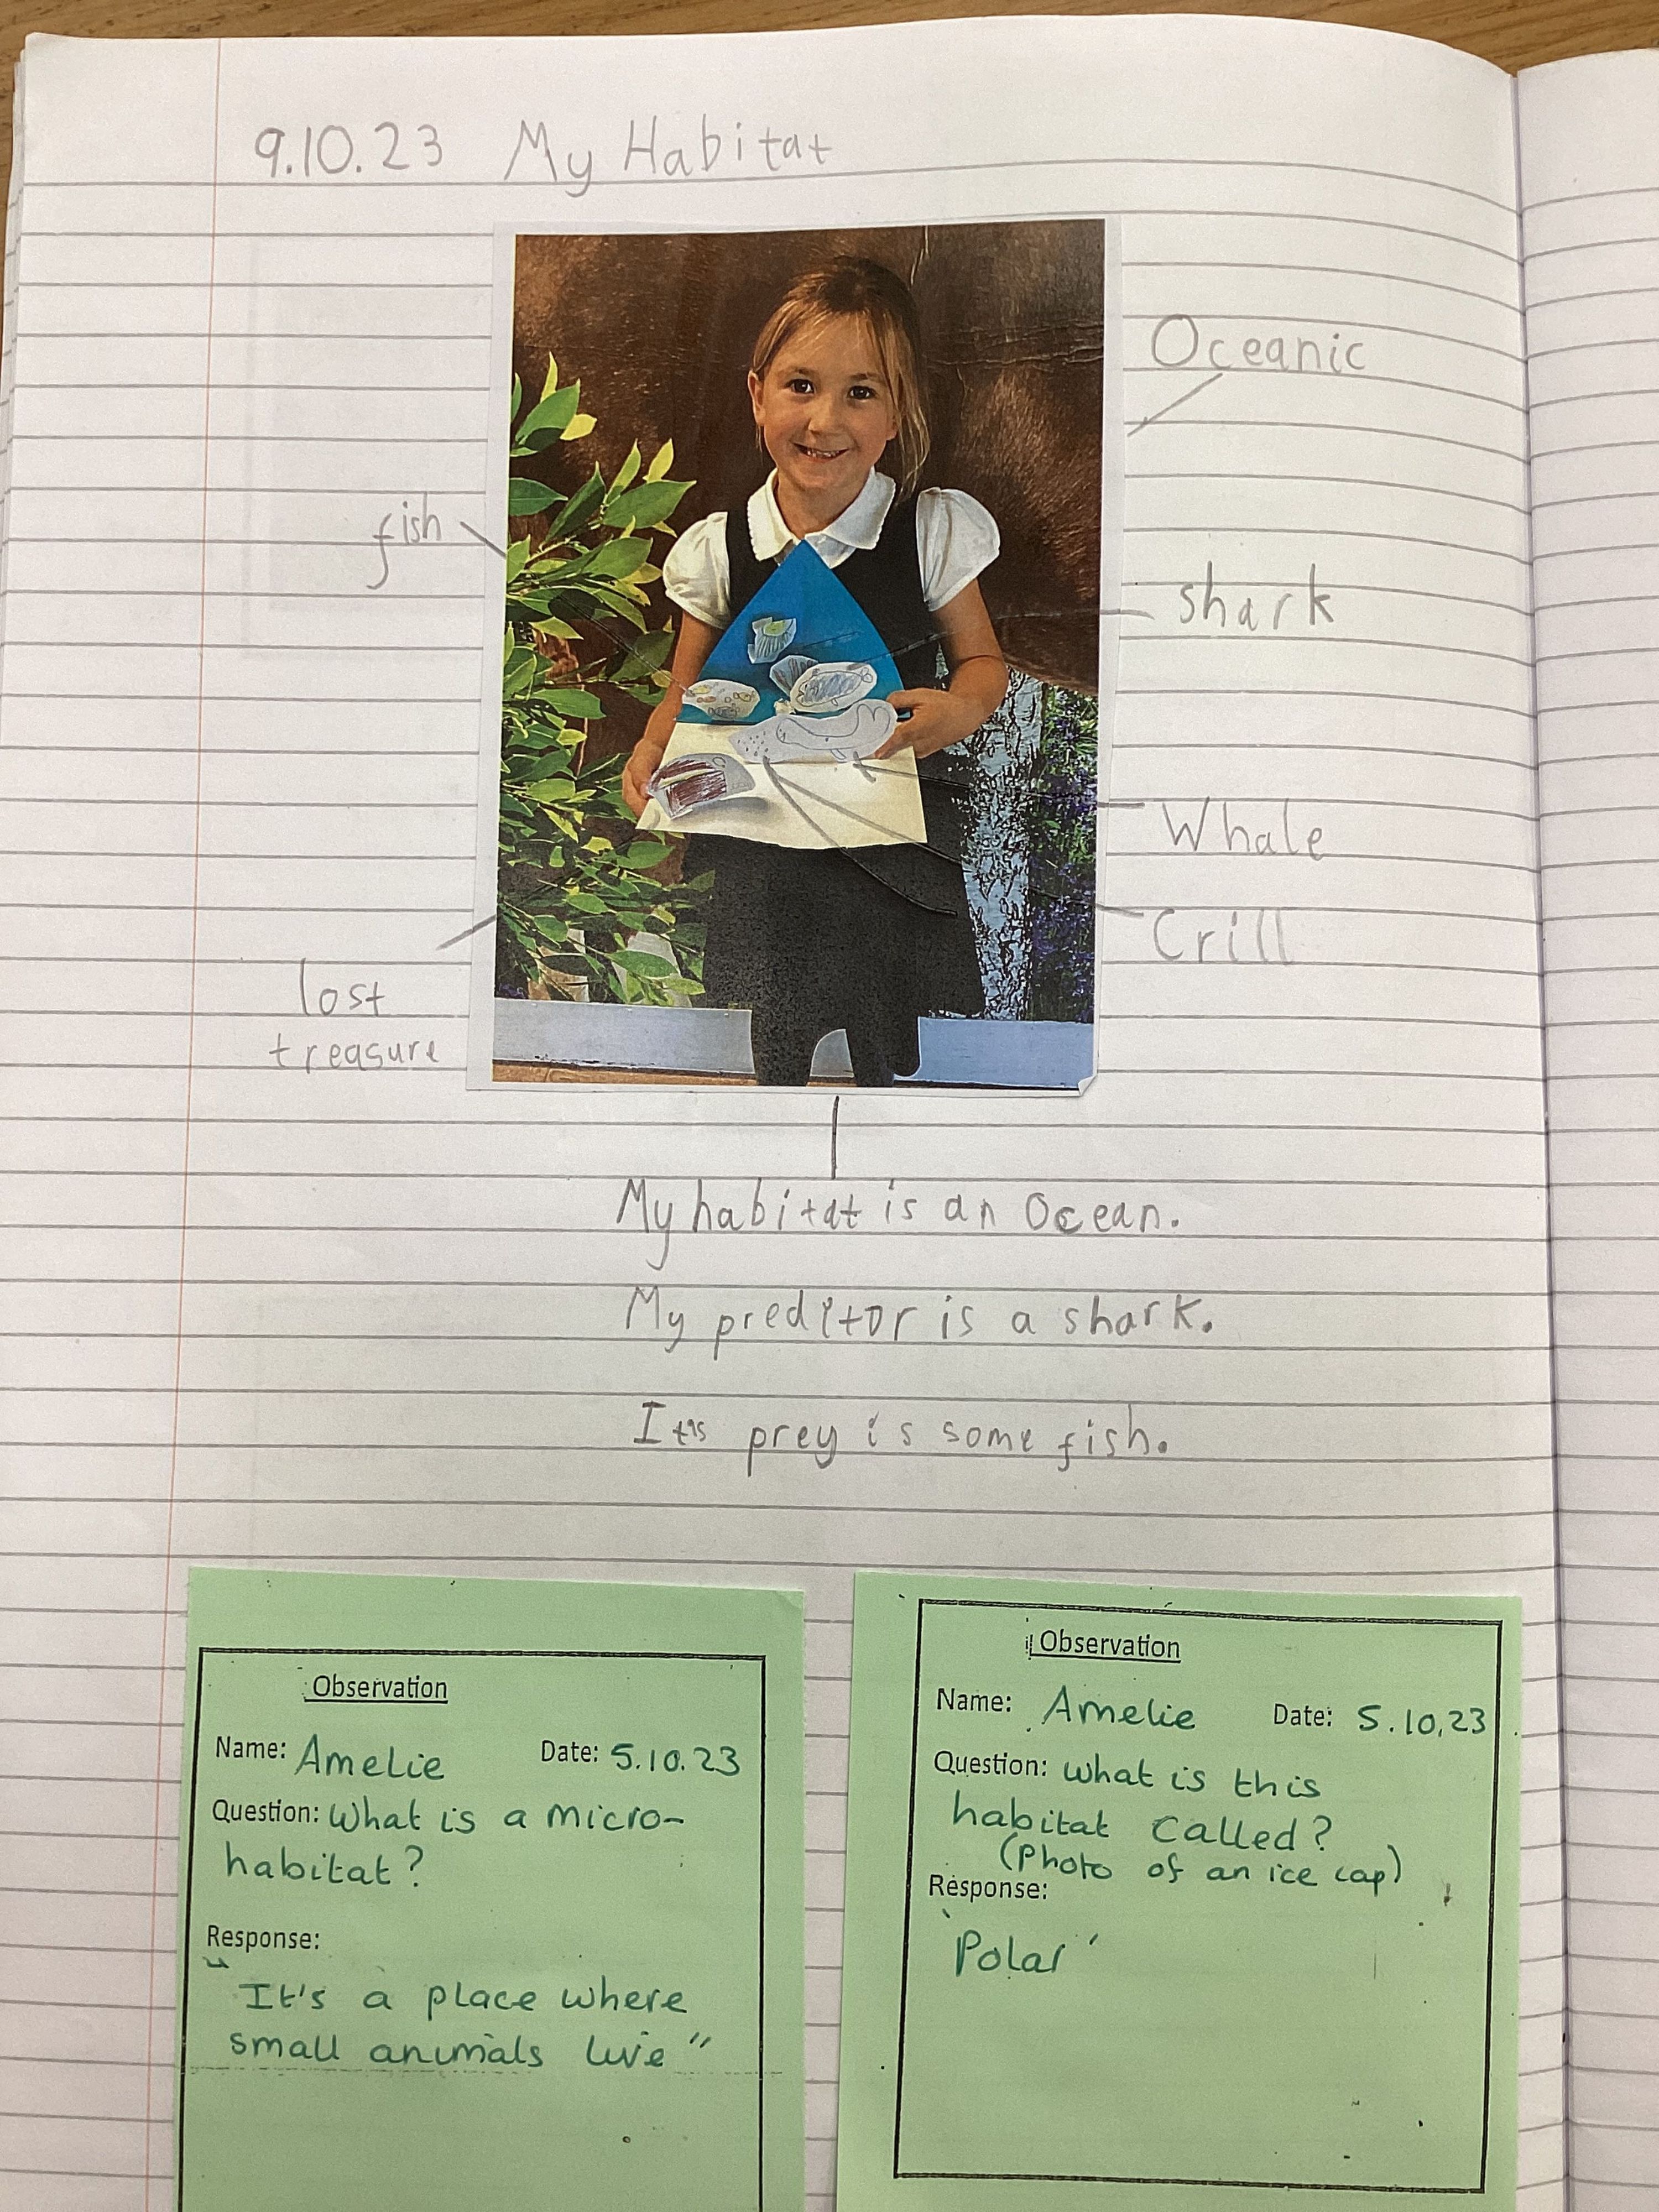 9.10.23 My Habitat
Oceanic
fish
shark
Whale
Crill
lost
treasure
My habitat is an Ocean.
My preditor is a shark.
It's prey is some fish.
Observation
Name: Amelie Date: 5.10.23
Question: What is a micro-
habitat?
Response:
"It's a place where
small animals live"
Observation
Name: Amelie Date: 5.10.23
Question: What is this
habitat called?
(Photo of an ice cap)
Response:
'Polar'